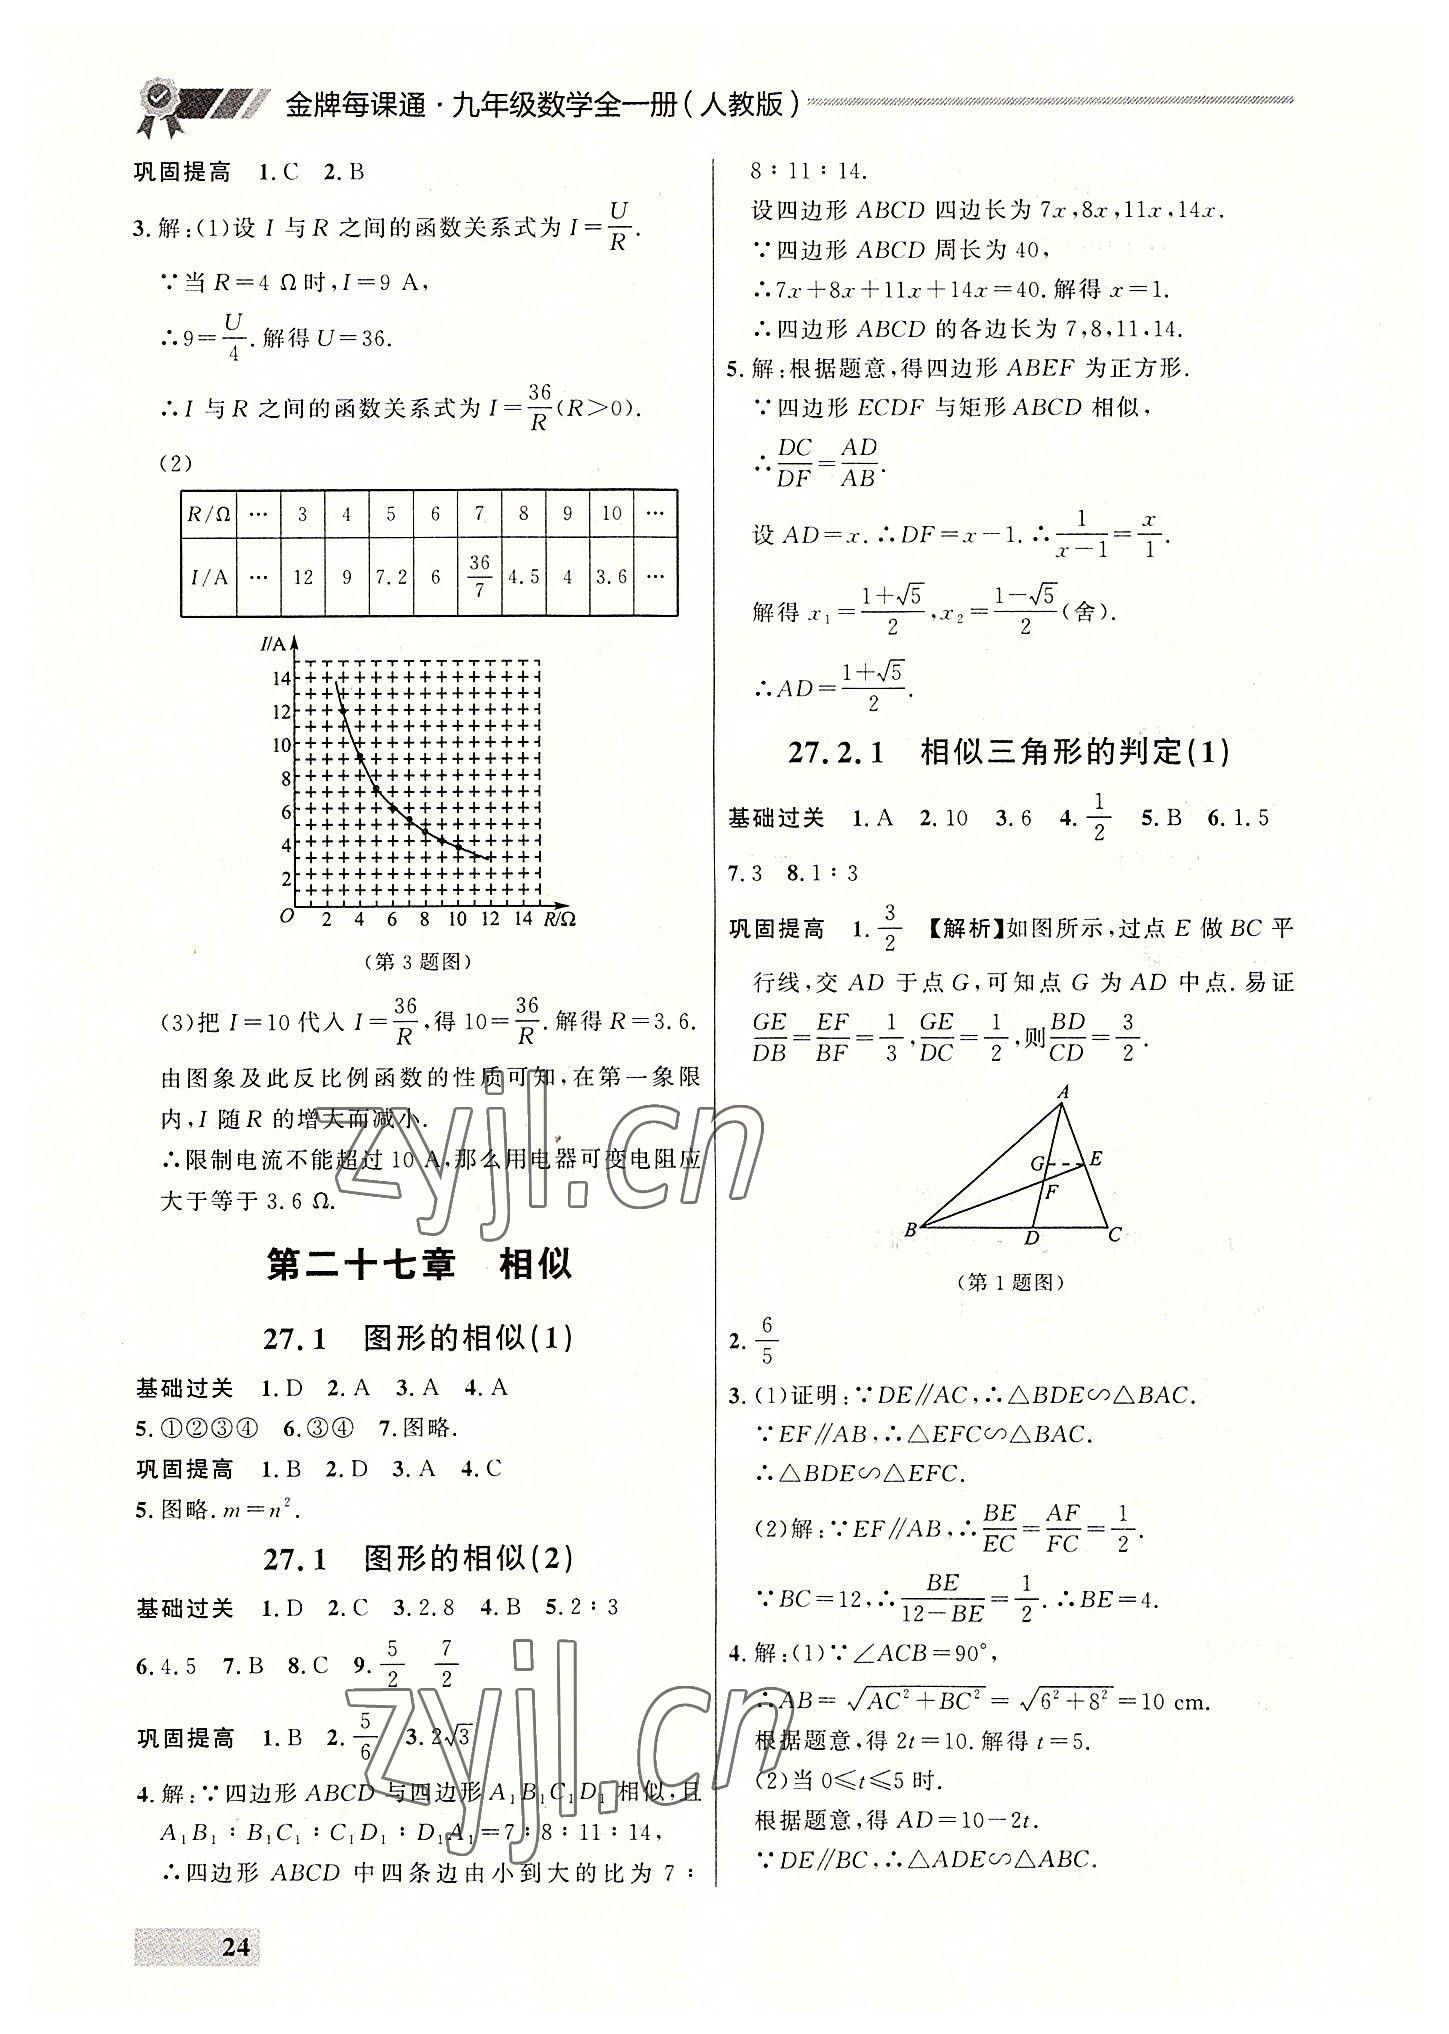 金牌每课通·九年级数学全一册(人教版)
巩固提高 1.C 2.B
3.解:(1)设 I 与R 之间的函数关系式为 I=U/R.
∵当 R=4 Ω时,I=9 A,
∴9=U/4.解得U=36.
∴I 与R 之间的函数关系式为 I=36/R(R>0).
(2)
R/Ω … 3 4 5 6 7 8 9 10 …
I/A … 12 9 7.2 6 36/7 4.5 4 3.6 …
I/A
14
12
10
8
6
4
2
O 2 4 6 8 10 12 14 R/Ω
(第 3 题图)
(3)把 I=10 代入 I=36/R,得 10=36/R.解得 R=3.6.
由图象及此反比例函数的性质可知,在第一象限
内,I 随 R 的增大而减小.
∴限制电流不能超过 10 A,那么用电器可变电阻应
大于等于 3.6 Ω.
第二十七章 相似
27.1 图形的相似(1)
基础过关 1.D 2.A 3.A 4.A
5.①②③④ 6.③④ 7.图略.
巩固提高 1.B 2.D 3.A 4.C
5.图略.m=n².
27.1 图形的相似(2)
基础过关 1.D 2.C 3.2.8 4.B 5.2∶3
6.4.5 7.B 8.C 9.5/2 7/2
巩固提高 1.B 2.5/6 3.2√3
4.解:∵四边形 ABCD 与四边形 A₁B₁C₁D₁ 相似,且
A₁B₁∶B₁C₁∶C₁D₁∶D₁A₁=7∶8∶11∶14,
∴四边形 ABCD 中四条边由小到大的比为 7∶
8∶11∶14.
设四边形 ABCD 四边长为 7x,8x,11x,14x.
∵四边形 ABCD 周长为 40,
∴7x+8x+11x+14x=40.解得 x=1.
∴四边形 ABCD 的各边长为 7,8,11,14.
5.解:根据题意,得四边形 ABEF 为正方形.
∵四边形 ECDF 与矩形 ABCD 相似,
∴DC/DF=AD/AB.
设 AD=x.∴DF=x-1.∴1/(x-1)=x/1.
解得 x₁=(1+√5)/2,x₂=(1-√5)/2(舍).
∴AD=(1+√5)/2.
27.2.1 相似三角形的判定(1)
基础过关 1.A 2.10 3.6 4.1/2 5.B 6.1.5
7.3 8.1∶3
巩固提高 1.3/2 【解析】如图所示,过点 E 做 BC 平
行线,交 AD 于点 G,可知点 G 为 AD 中点.易证
GE/DB=EF/BF=1/3,GE/DC=1/2,则BD/CD=3/2.
A
G E
F
B D C
(第 1 题图)
2.6/5
3.(1)证明:∵DE∥AC,∴△BDE∽△BAC.
∵EF∥AB,∴△EFC∽△BAC.
∴△BDE∽△EFC.
(2)解:∵EF∥AB,∴BE/EC=AF/FC=1/2.
∵BC=12,∴BE/(12-BE)=1/2.∴BE=4.
4.解:(1)∵∠ACB=90°,
∴AB=√(AC²+BC²)=√(6²+8²)=10 cm.
根据题意,得 2t=10.解得 t=5.
(2)当 0≤t≤5 时.
根据题意,得 AD=10-2t.
∵DE∥BC,∴△ADE∽△ABC.
24
zyjl.cn
zyjl.cn